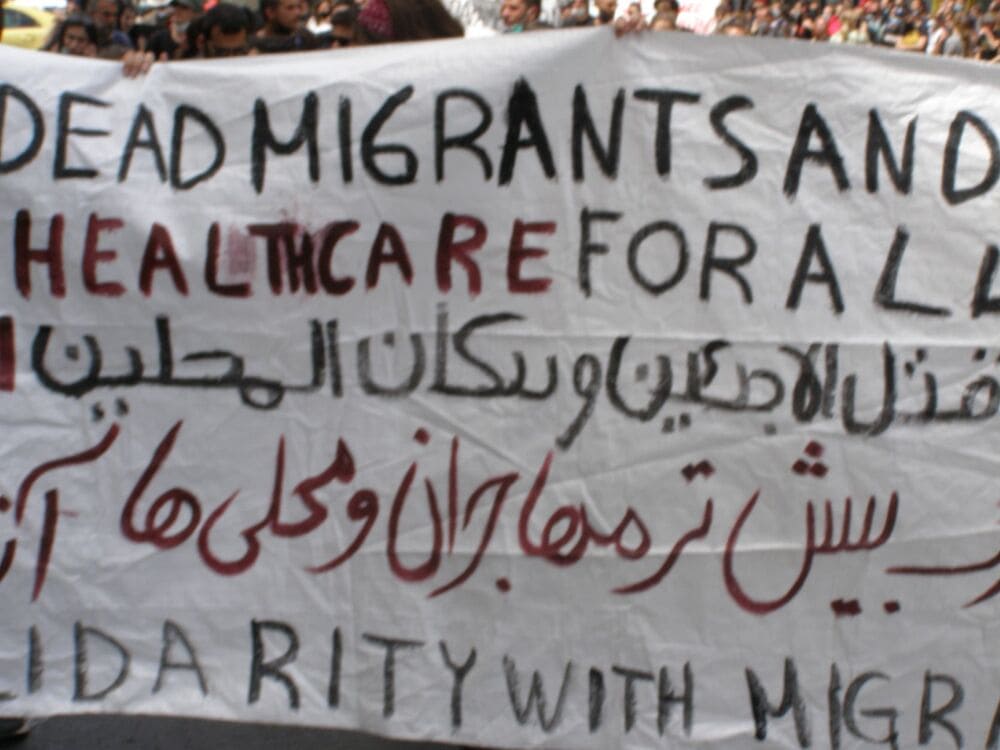 DEAD MIGRANTS AND
HEALTHCARE FOR ALL
الاجئين وسكان المحلين
بیش تر مهاجران و محلی ها
LIDARITY WITH MIGRA